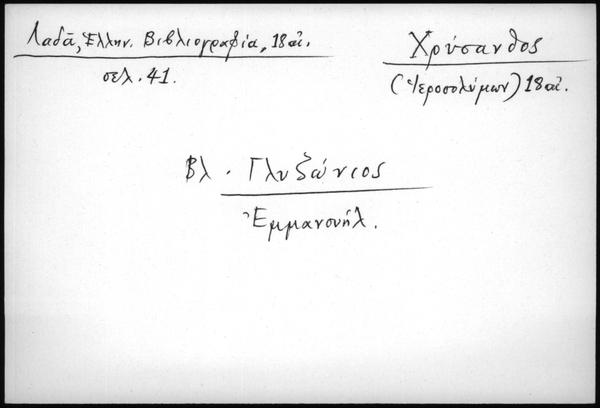 Λαδᾶ, Ἑλλην. Βιβλιογραφία, 18 αἰ.
σελ. 41.
Χρύσανθος
(Ἱεροσολύμων) 18 αἰ.
Βλ. Γλυζώνιος
Ἐμμανουήλ.